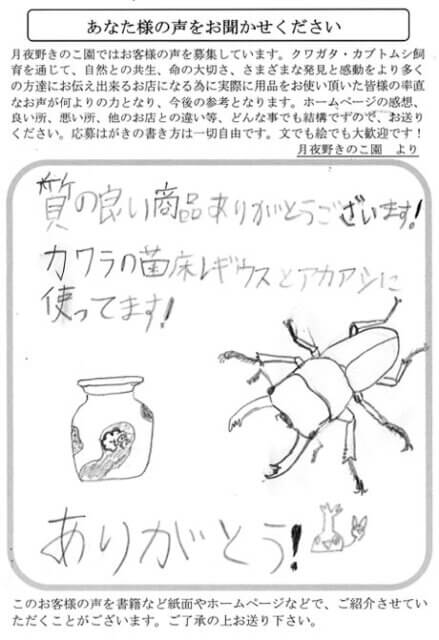 あなた様の声をお聞かせください
月夜野きのこ園ではお客様の声を募集しています。クワガタ・カブトムシ飼
育を通じて、自然との共生、命の大切さ、さまざまな発見と感動をより多く
の方達にお伝え出来るお店になる為に実際に用品をお使い頂いた皆様の率直
なお声が何よりの力となり、今後の参考となります。ホームページの感想、
良い所、悪い所、他のお店との違い等、どんな事でも結構ですので、お送り
ください。応募はがきの書き方は一切自由です。文でも絵でも大歓迎です！
月夜野きのこ園　より
質の良い商品ありがとうございます!
カワラの苗床レギウスとアカアシに
使ってます!
ありがとう!
このお客様の声を書籍など紙面やホームページなどで、ご紹介させてい
ただくことがございます。ご了承の上お送り下さい。